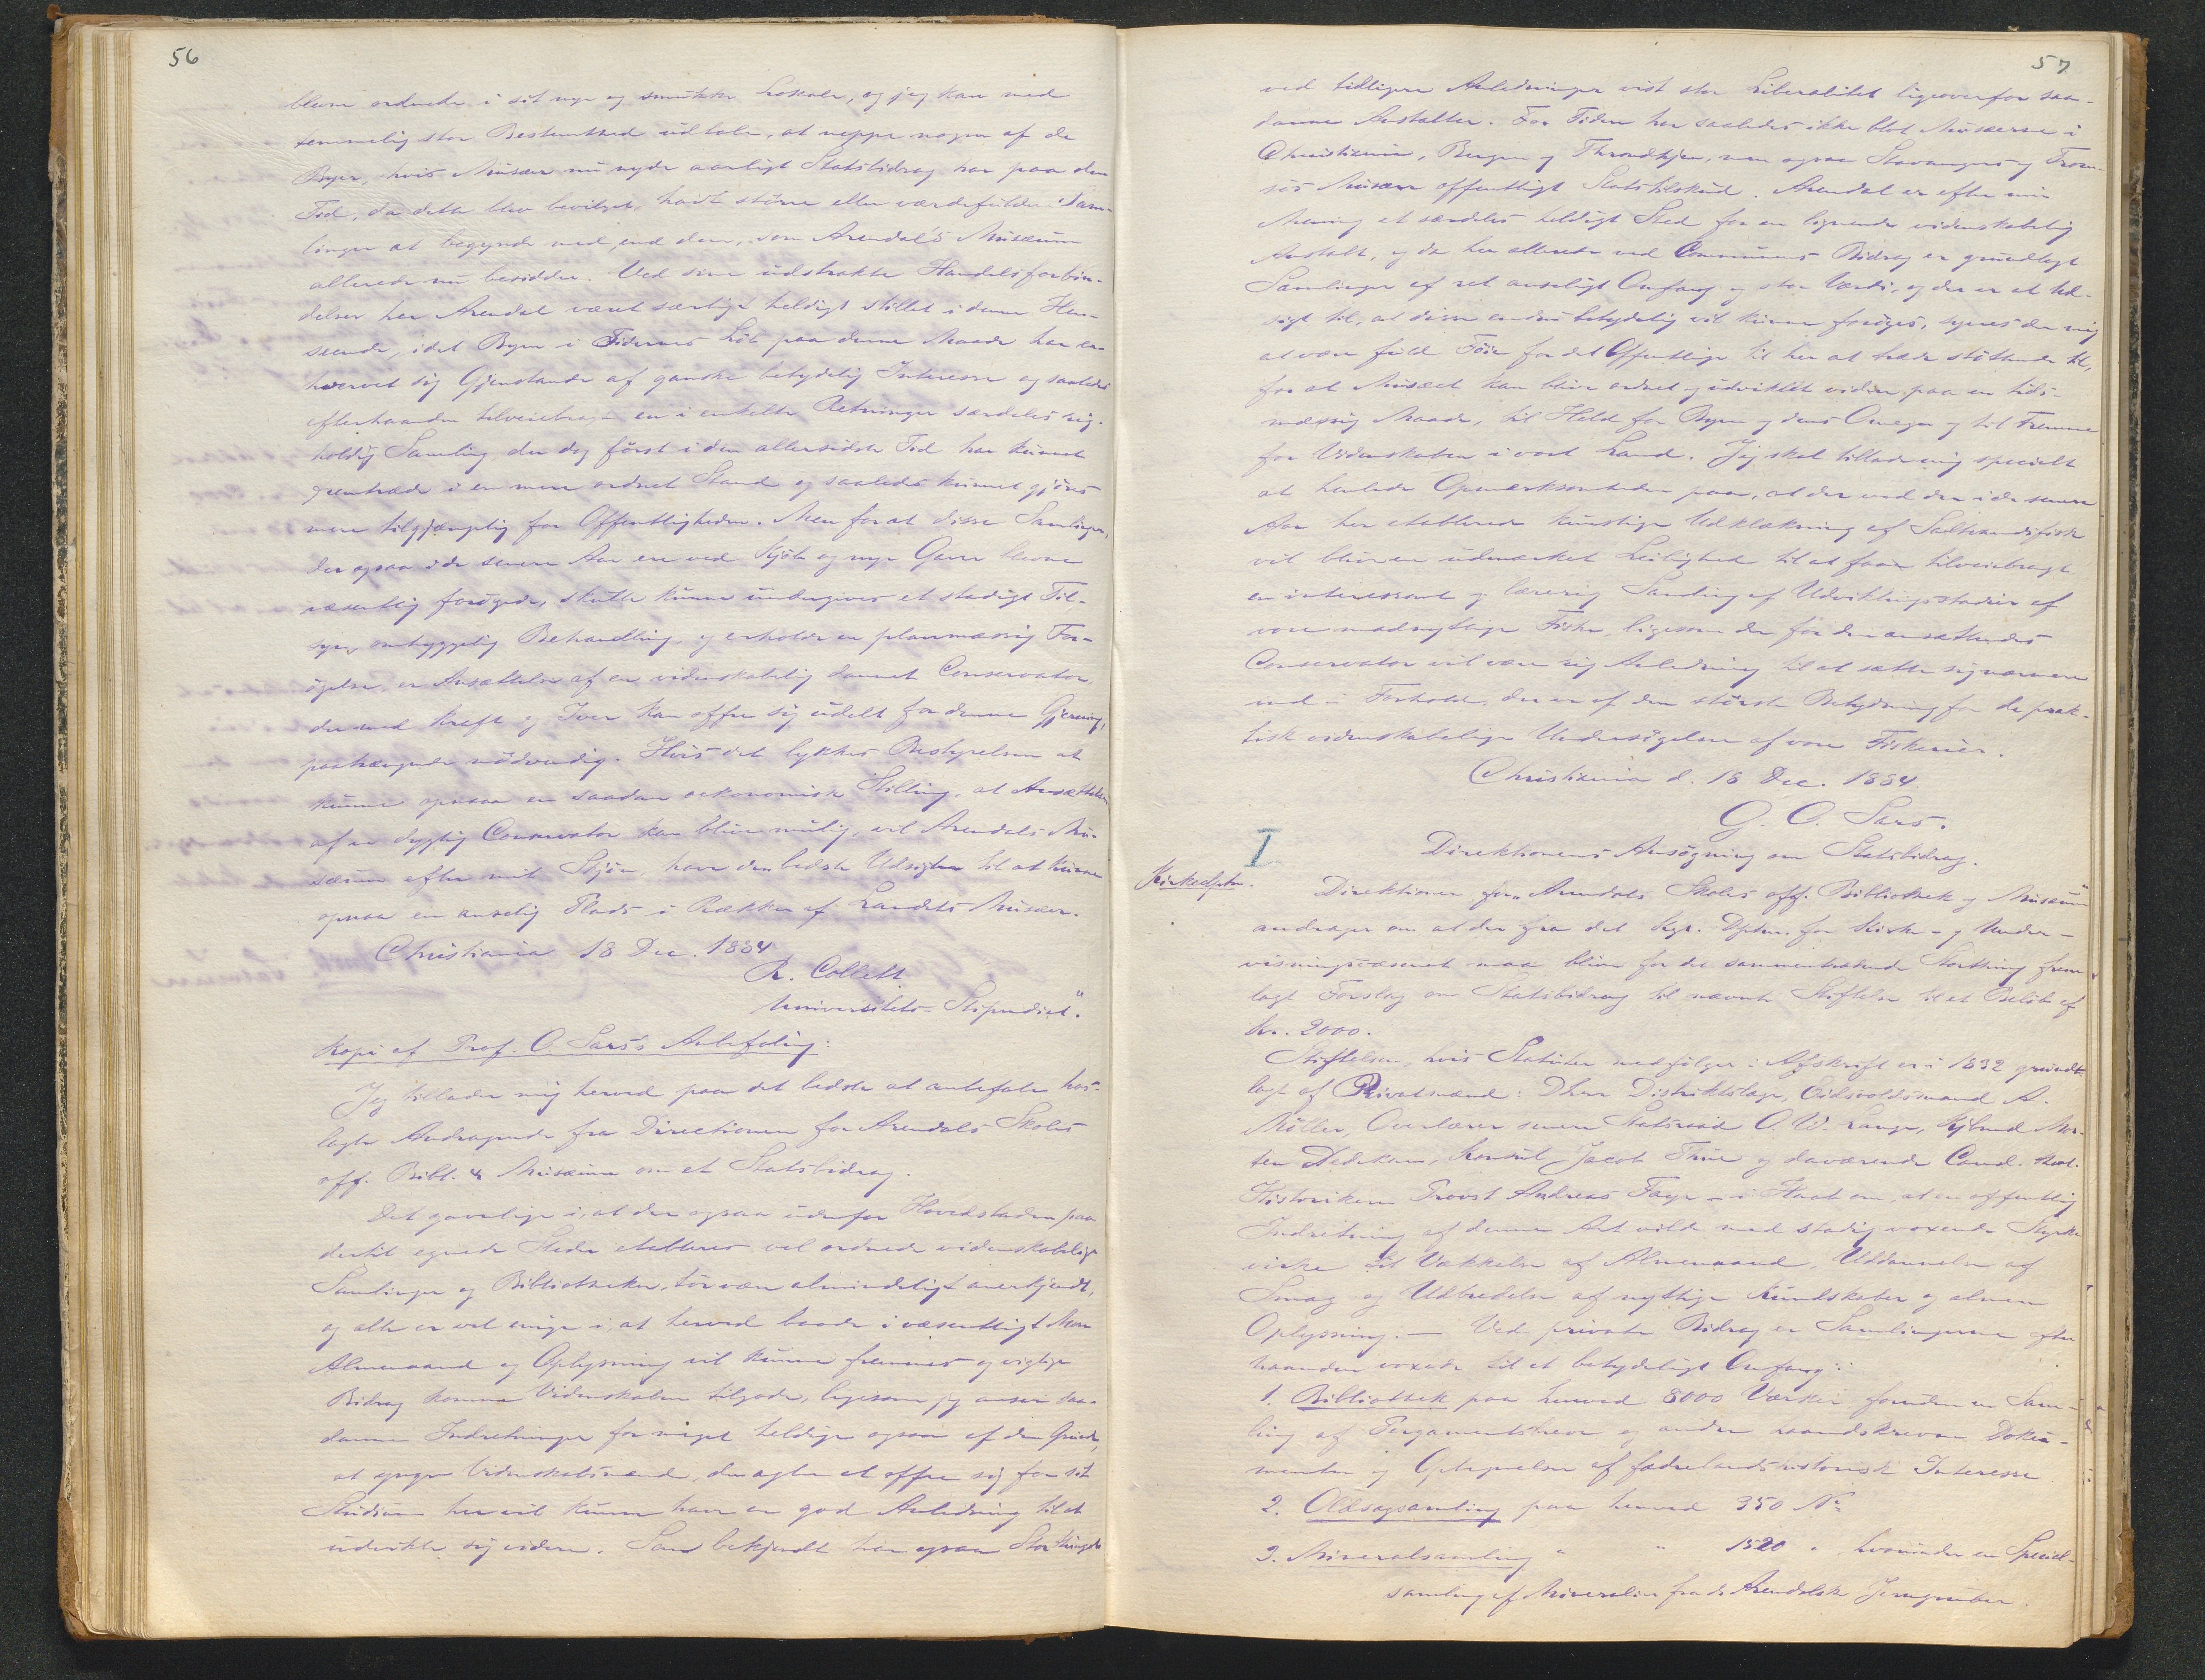 56
blevne ordnede i sit nye og smukke Lokale, og jeg kan med
temmelig stor Bestemthed udtale, at neppe nogen af de
Byer, hvis Musæer nu nyde aarligt Statsbidrag har paa den
Tid, da dette blev bevilget, havt større eller værdifulde Sam-
linger at begynde med, end dem, som Arendal's Musæum
allerede nu besidder. Ved sine udstrakte Handelsforbin-
delser har Arendal været særligt heldigt stillet i denne Hen-
seende, idet Byen i Tidernes Løb paa denne Maade har er-
hvervet sig Gjenstande af ganske betydelig Interesse og saaledes
efterhaanden tilveiebragt en i enkelte Retninger særdeles rig-
holdig Samling der dog først i den allersidste Tid har kunnet
fremtræde i en mere ordnet Stand og saaledes kunnet gjøres
mere tilgjængelig for Offentligheden. Men for at disse Samlinger,
der ogsaa i de senere Aar ere ved Kjøb og nye Gaver blevne
væsentlig forøgede, skulle kunne undergives et stadigt Til-
syn, omhyggelig Behandling, og erholde en planmæssig For-
øgelse, er Ansættelse af en videnskabelig dannet Conservator,
der med Kraft og Iver kan offre sig udelt for denne Gjerning,
paatrængende nødvendig. Hvis det lykkes Bestyrelsen at
kunne opnaa en saadan oekonomisk Stilling, at Ansættelsen
af en dygtig Conservator kan blive mulig, vil Arendals Mu-
sæum efter mit Skjøn, have de bedste Udsigter til at kunne
opnaa en anselig Plads i Rækken af Landets Musæer.
Christiania 18 Dec. 1884
R. Collett
Universitets-Stipendiat."
Kopi af Prof. O. Sars's Anbefaling:
Jeg tillader mig herved paa det bedste at anbefale hos-
lagte Andragende fra Directionen for Arendals Skoles
off. Bibl. & Musæum om et Statsbidrag.
Det gavnlige i, at der ogsaa udenfor Hovedstaden paa
dertil egnede Steder etableres vel ordnede videnskabelige
Samlinger og Bibliotheker, tør være almindeligt anerkjendt,
og alle er vel enige i, at herved baade i væsentligt Mon
Almenaand og Oplysning vil kunne fremmes og vigtige
Bidrag komme Videnskaben tilgode, ligesom jeg anser saa-
danne Indretninger for meget heldige ogsaa af den Grund,
at yngre Videnskabsmænd, der agter at offre sig for sit
Studium her vil kunne have en god Anledning til at
udvikle sig videre. Som bekjendt har ogsaa Storthinget
57
ved tidligere Anledninger vist stor Liberalitet ligeoverfor saa-
danne Anstalter. For Tiden har saaledes ikke blot Musæerne i
Christiania, Bergen og Throndhjem, men ogsaa Stavangers og Trom-
søs Musæer offentligt Statstilskud. Arendal er efter min
Mening et særdeles heldigt Sted for en lignende videnskabelig
Anstalt, og da her allerede ved Communens Bidrag er grundlagt
Samlinger af ret anseligt Omfang og stor Værdi, og der er al Ud-
sigt til, at disse endnu betydelig vil kunne forøges, synes der mig
at være fuld Føie for det Offentlige til her at træde støttende til,
for at Musæet kan blive ordnet og udviklet videre paa en tids-
mæssig Maade, til Held for Byen og dens Omegn og til Fremme
for Videnskaben i vort Land. Jeg skal tillade mig specielt
at henlede Opmærksomheden paa, at der ved den i de senere
Aar her etablerede kunstige Udklækning af Saltvandsfisk
vil blive en udmærket Leilighed til at faae tilveiebragt
en interessant og lærerig Samling af Udviklingsstadier af
vore madnyttige Fiske, ligesom der for den ansættendes
Conservator vil være rig Anledning til at sætte sig nærmere
ind i Forhold, der er af den største Betydning for de prak-
tisk videnskabelige Undersøgelser af vore Fiskerier.
Christiania d. 18 Dec. 1884
G. O. Sars.
I
Direktionens Ansøgning om Statsbidrag.
Kirkedptm.
Direktionen for "Arendals Skoles off. Bibliothek og Musæum"
andrager om at der fra det Kgl. Dptm. for Kirke- og Under-
visningsvæsenet maa blive for det sammentrædende Storthing frem-
lagt Forslag om Statsbidrag til nævnte Stiftelse til et Beløb af
Kr. 2000.
Stiftelsen, hvis Statuter medfølger i Afskrift er i 1832 grundt-
lagt af Privatmænd: DHrr Distriktslæge, Eidsvoldsmand A.
Møller, Overlærer senere Statsraad O. V. Lange, Kjbmd Mor-
ten Dedekam, Konsul Jacob Thue og daværende Cand. theol.
Historikeren Provst Andreas Faye – i Haab om, at en offentlig
Indretning af denne Art vilde med stadig voxende Styrke
virke til Vækkelse af Almenaand, Uddannelse af
Smag og Udbredelse af nyttige Kundskaber og almen
Oplysning. — Ved private Bidrag er Samlingerne efter-
haanden voxede til et betydeligt Omfang:
1. Bibliothek paa henved 8000 Værker foruden en Sam-
ling af Pergamentsbreve og andre haandskrevne Doku-
menter og Optegnelser af fædrelandshistorisk Interesse
2. Oldsagsamling paa henved 350 No
3. Mineralsamling " " 1520 " hvorunder en Special-
samling af Mineralier fra de Arendalske Jerngruber.